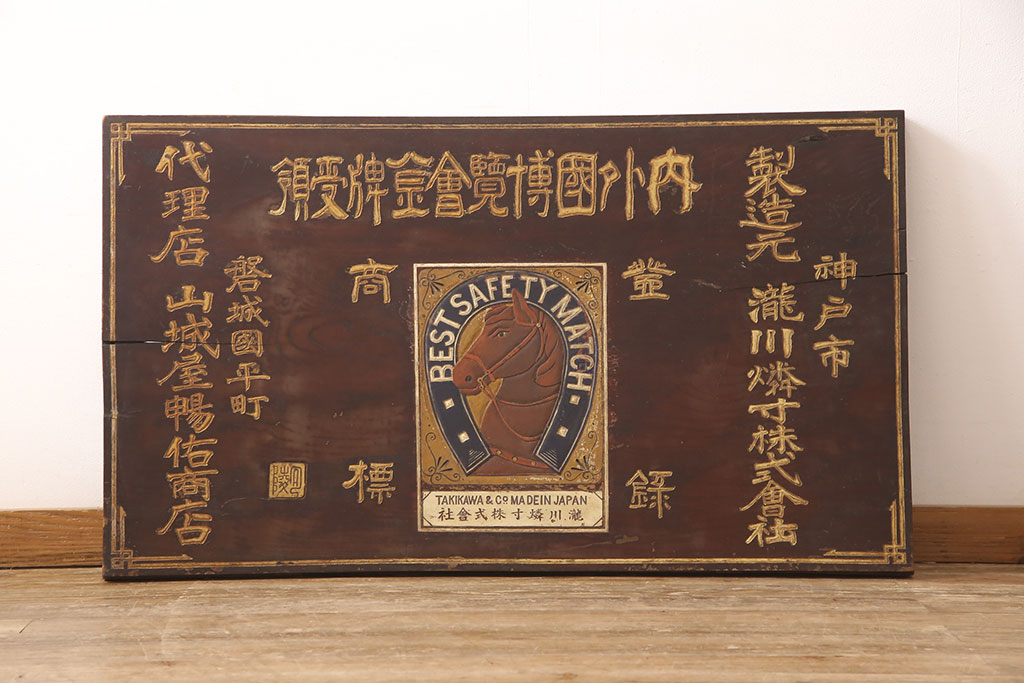 内外國博覽會金牌受領
神戸市
製造元 瀧川燐寸株式會社
登錄
商標
BEST SAFETY MATCH
TAKIKAWA & Co MADE IN JAPAN
瀧川燐寸株式會社
磐城國平町
代理店 山城屋暢佑商店